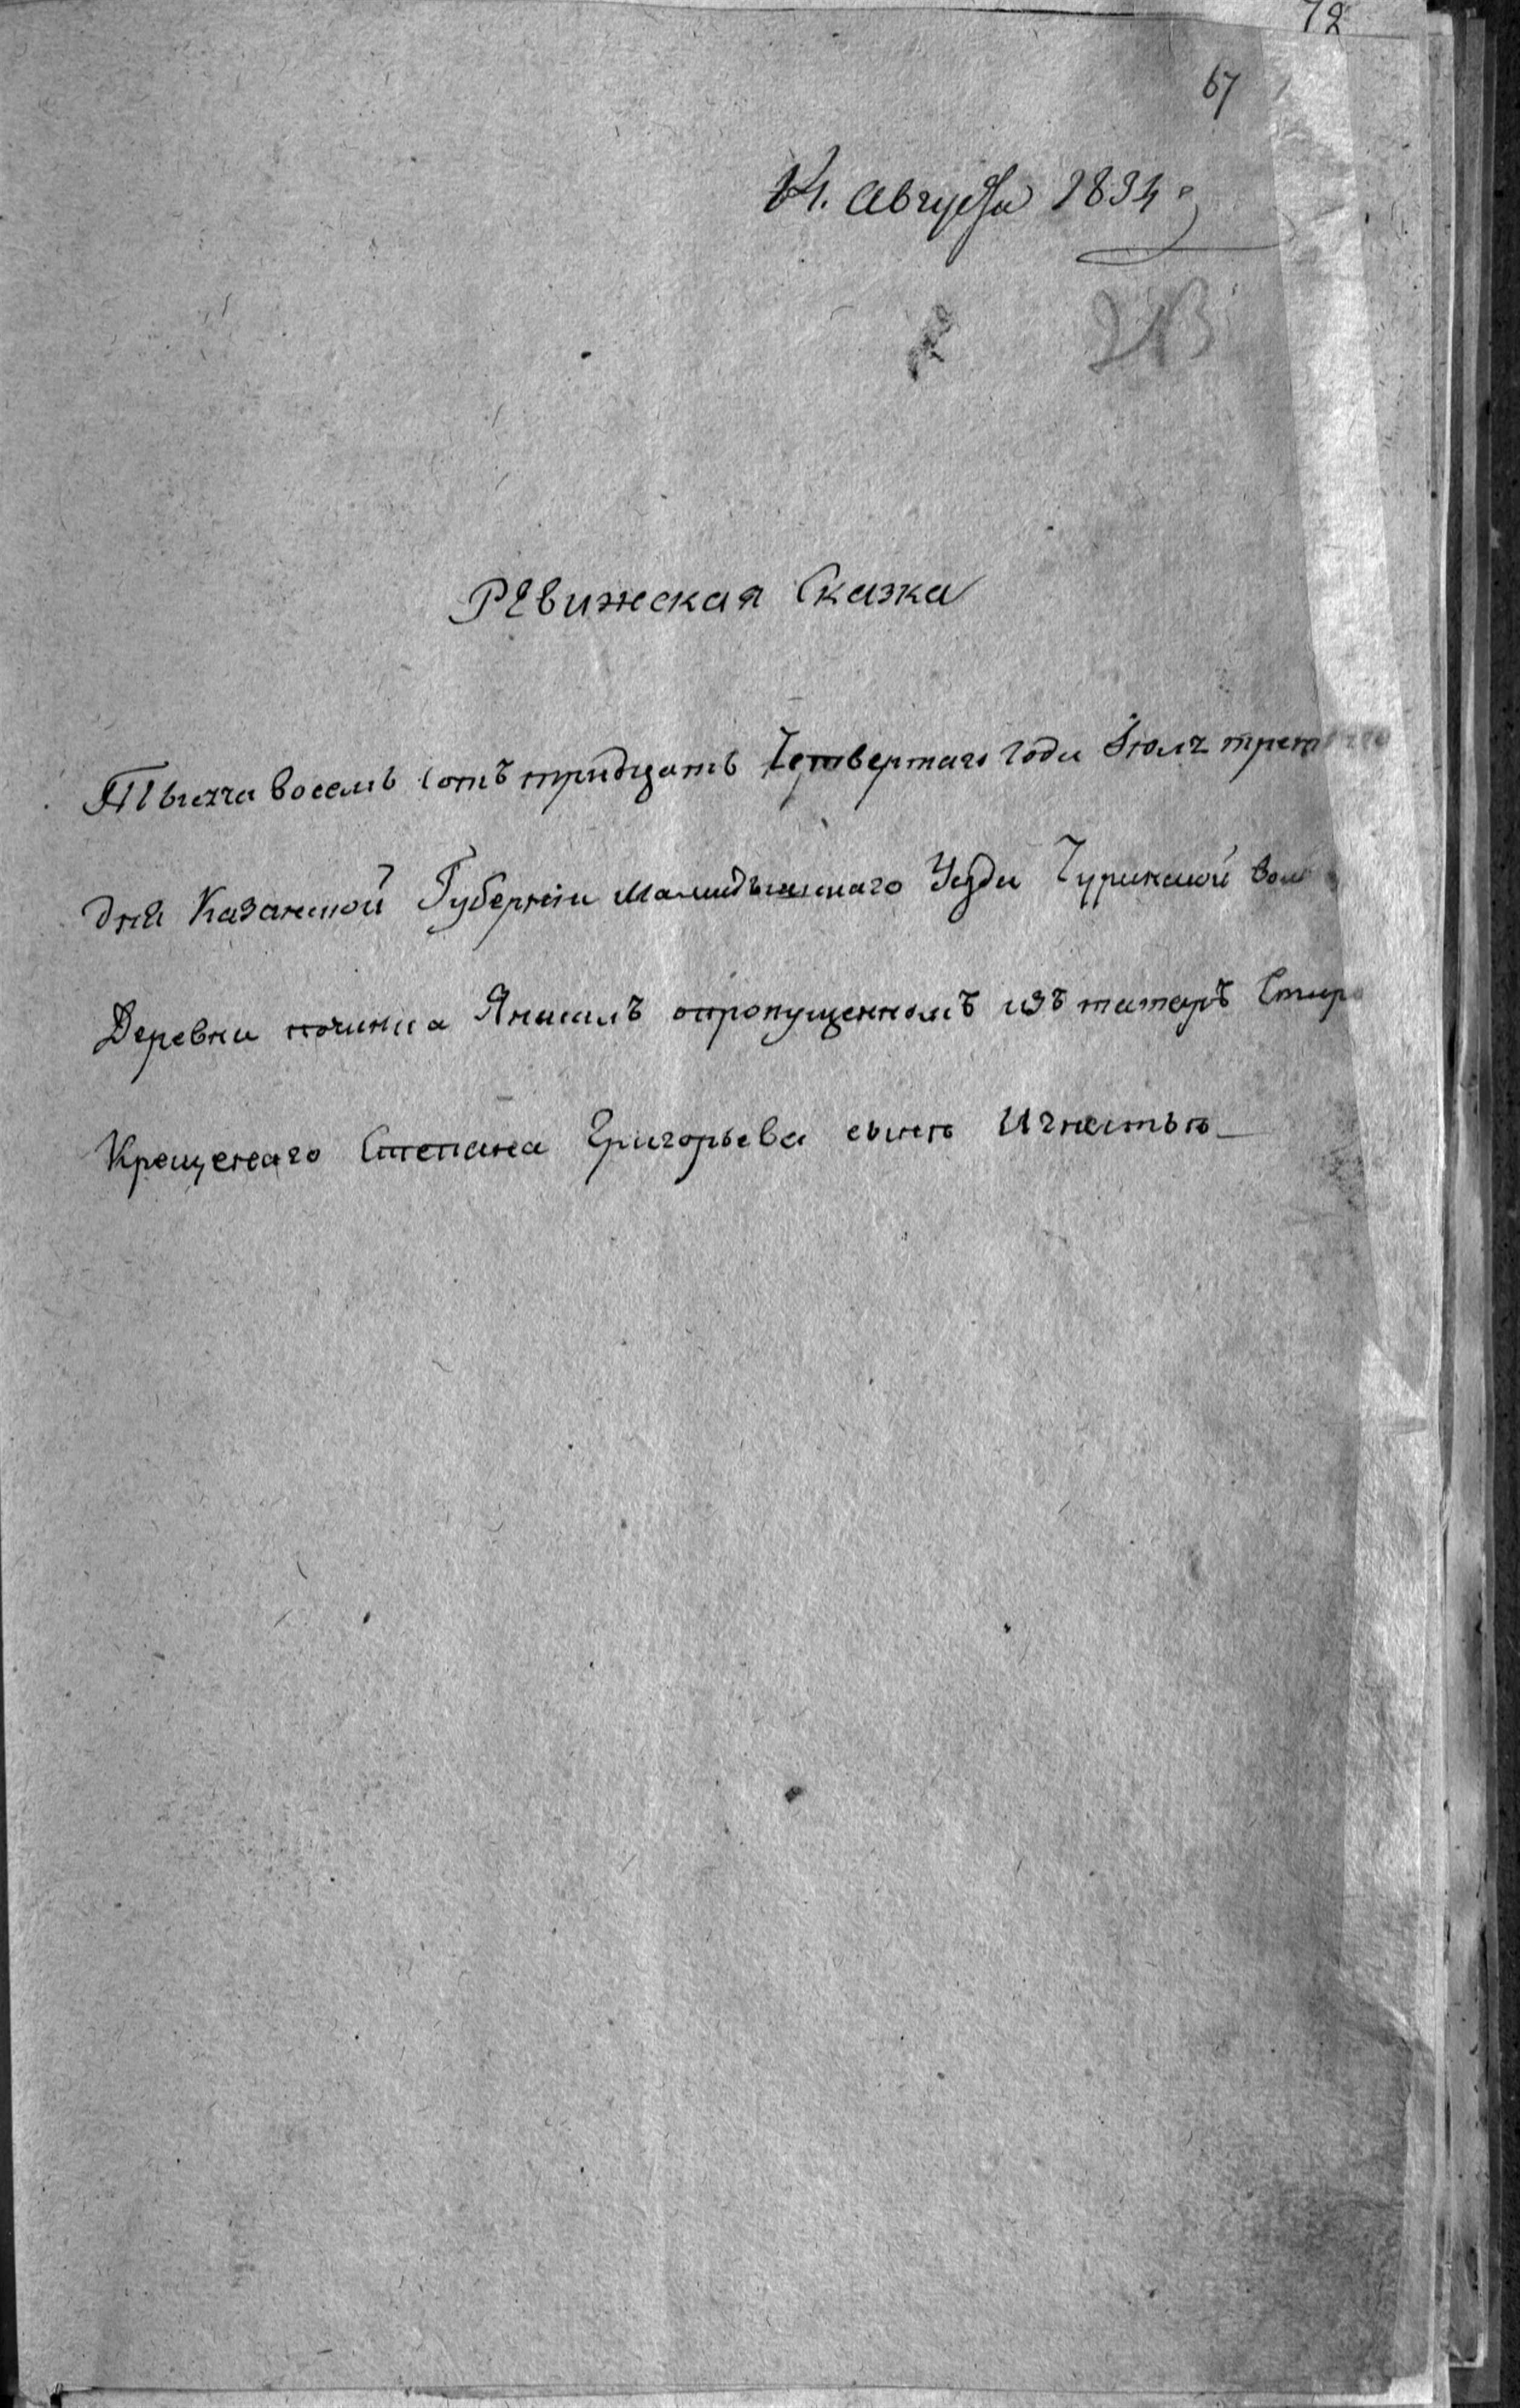 72
67
Августа 1834
213
Ревижская Сказка
Тысяча восемь сотъ тридцать Четвертаго года Июля
дня Казанской Губернiи Мамадышскаго Уезда Чуринской
Деревни починка Янасалъ опропущенномъ изъ татаръ
Крещенаго Степана Григорьева сыне Игнатье